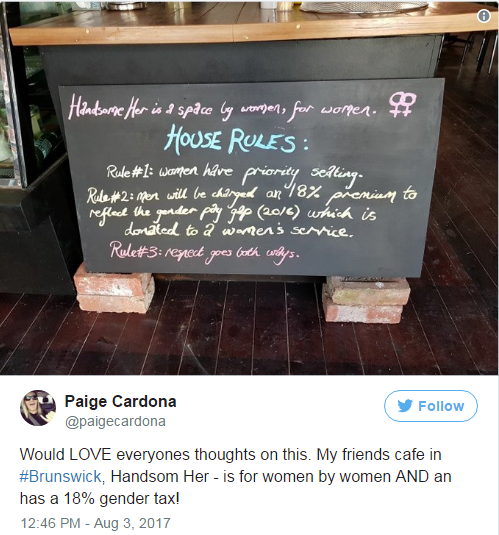 Handsome Her is a space by women, for women.
HOUSE RULES:
Rule#1: women have priority seating.
Rule#2: men will be charged an 18% premium to
reflect the gender pay gap (2016) which is
donated to a women's service.
Rule#3: respect goes both ways.
Paige Cardona
@paigecardona
Follow
Would LOVE everyones thoughts on this. My friends cafe in
#Brunswick, Handsom Her - is for women by women AND an
has a 18% gender tax!
12:46 PM - Aug 3, 2017